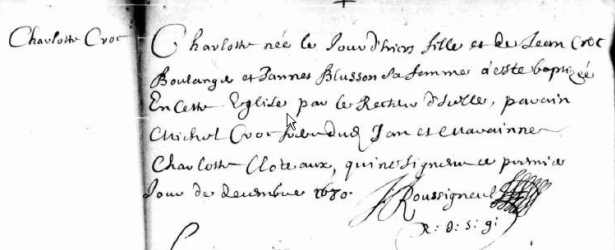 Charlotte Croc
Charlotte née le Jour d'hier fille et de Jean Croc
Boulanger et Jannes Blusson sa femme a este baptizée
En Cette Eglise par le Recteur d'Icelle, parain
Michel Croc Jan et Marainne
Charlotte Cloteaux, qui ne Signent ce premier
Jour de decembre 1670.
J Roussigneul
R: D: S: g: